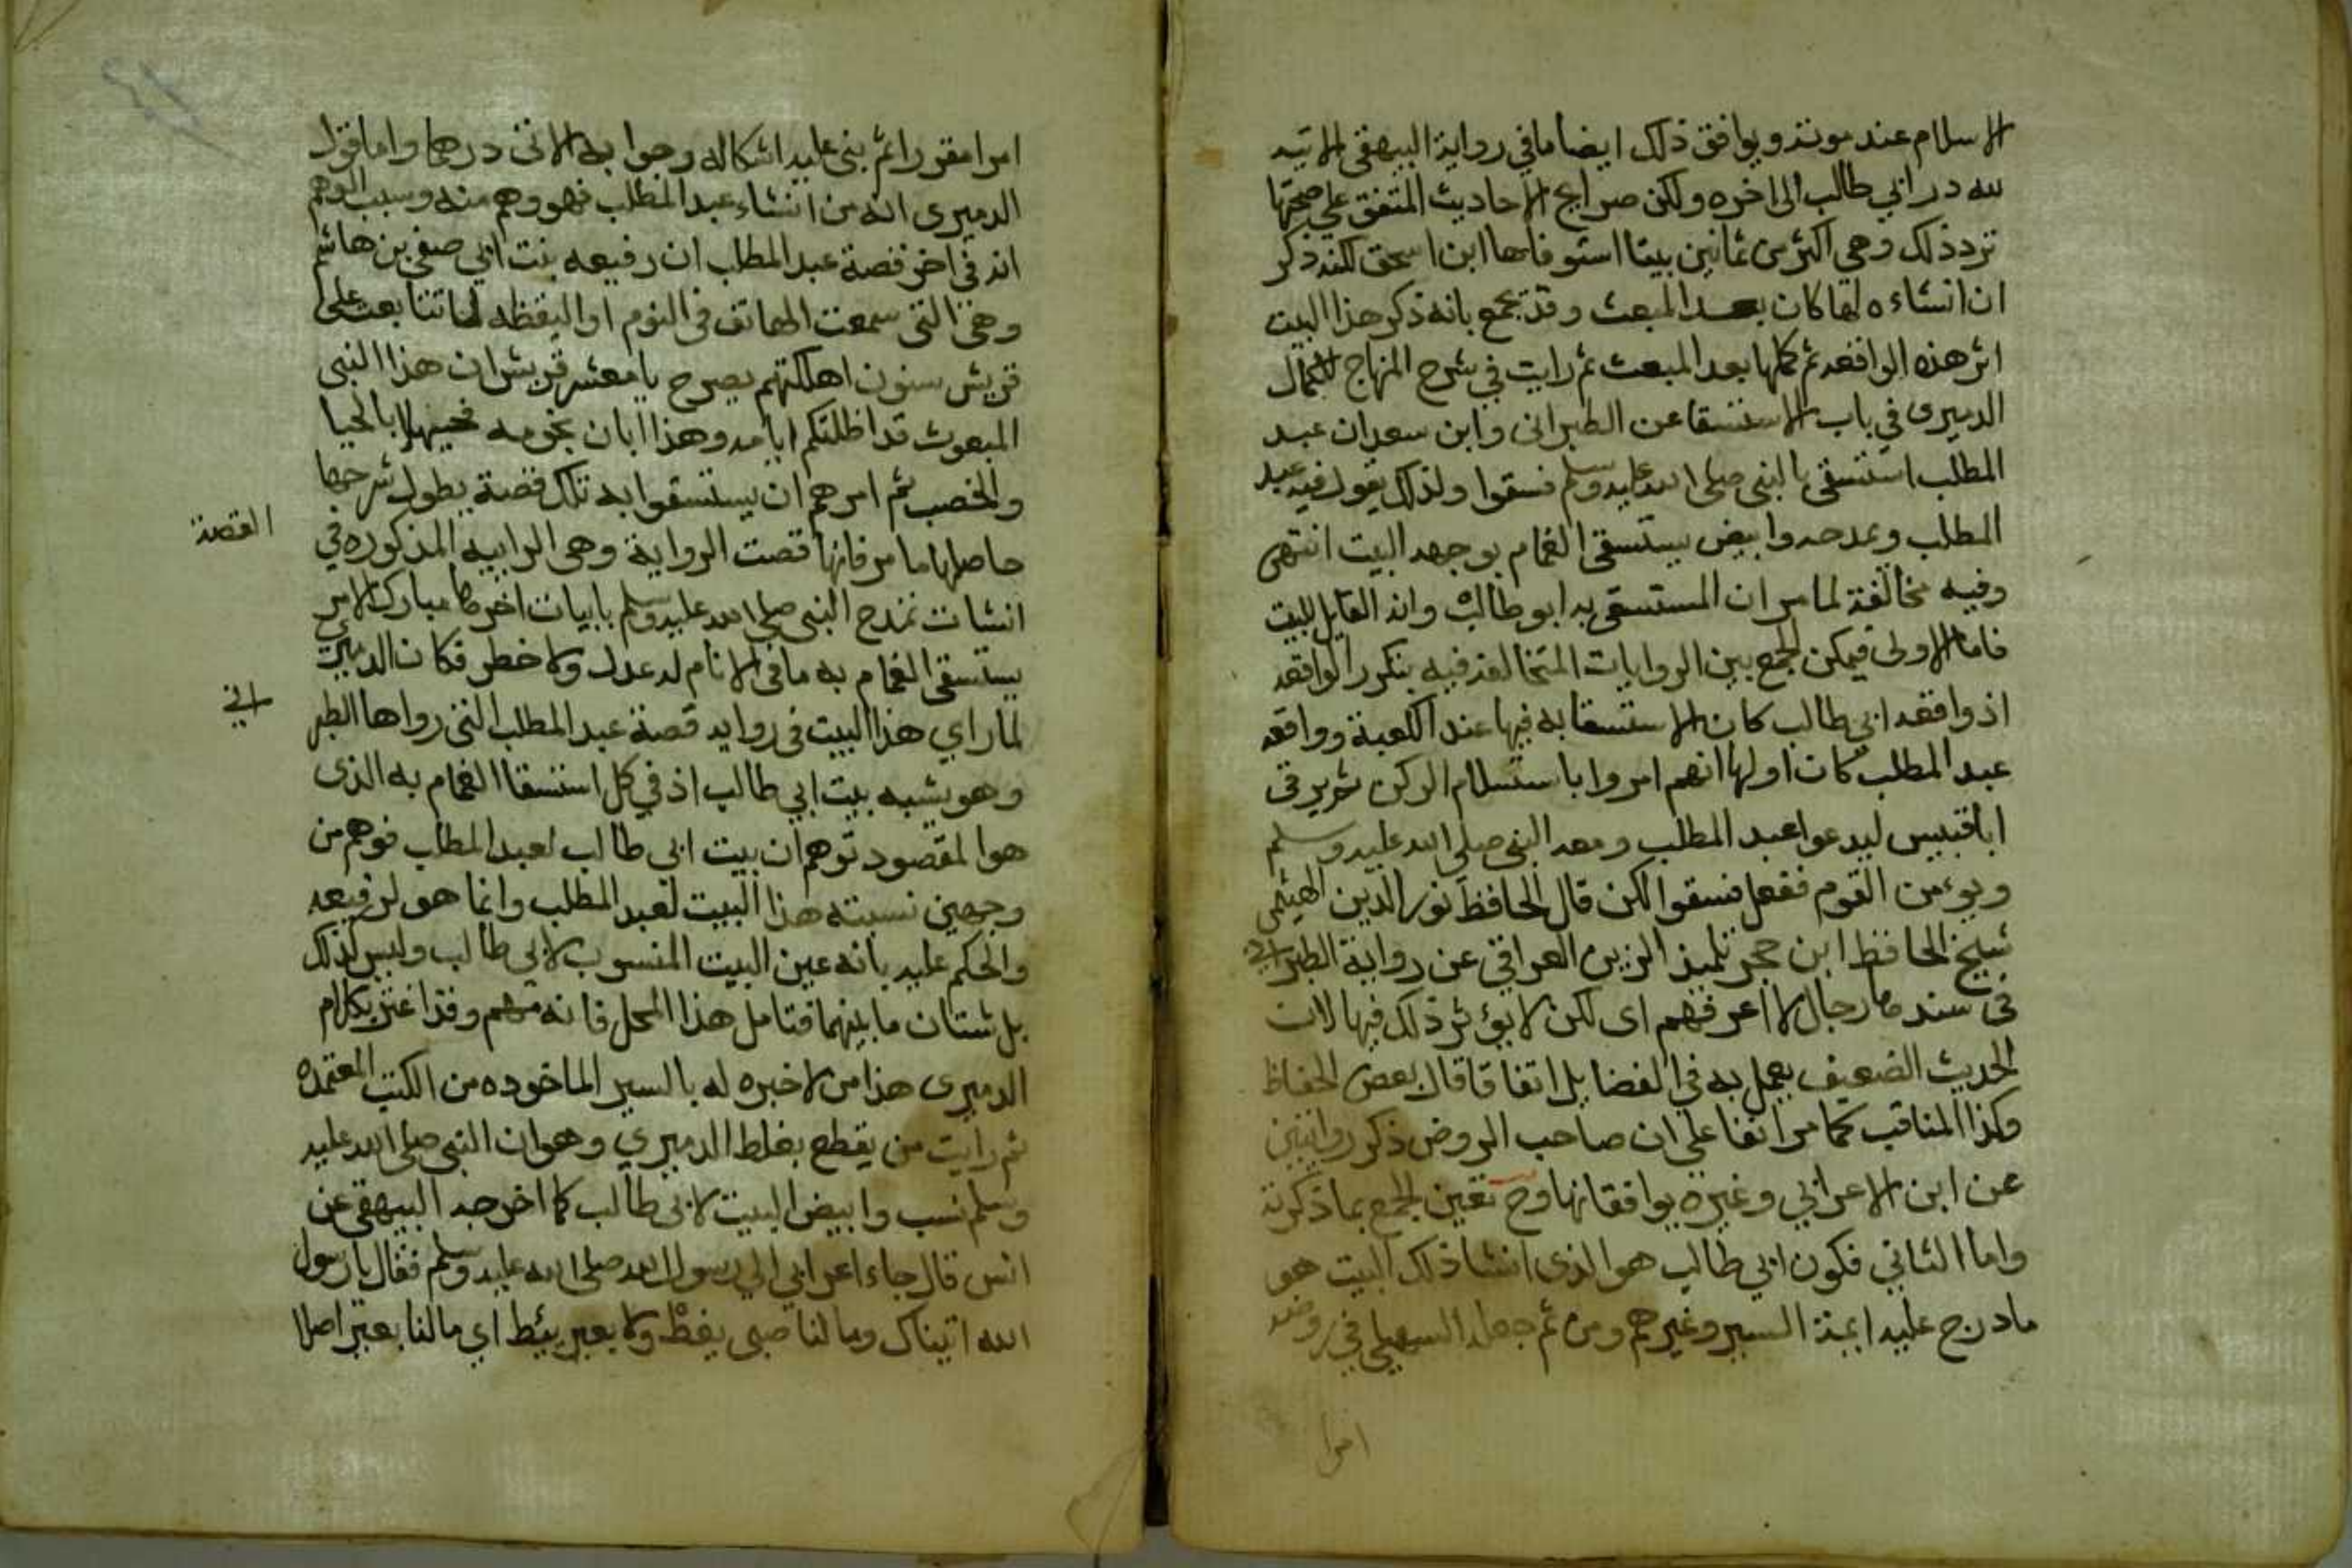 الاسلام عند موته ويوافق ذلك ايضا ما في رواية البيهقي الاتيه
لله در ابي طالب الى اخره ولكن صرايح الاحاديث المتفق علي صحتها
ترد ذلك وهي اكثر من ثمانين بيتا استوفاها ابن اسحق لكنه ذكر
ان انشاءه لها كان بعد المبعث وقد يجمع بانه ذكر هذا البيت
اثر هذه الواقعه ثم كملها بعد المبعث ثم رايت في شرح المنهاج للكمال
الدميرى في باب الاستسقا عن الطبرانى وابن سعد ان عبد
المطلب استسقى بالنبى صلى الله عليه وسلم فسقوا ولذلك يقول فيه عبد
المطلب ويمدحه وابيض يستسقى الغمام بوجهه البيت انتهى
وفيه مخالفة لما مر ان المستسقى به ابو طالب وانه القايل للبيت
فاما الاولى فيمكن الجمع بين الروايات المتخالفه فيه بتكرر الواقعه
اذ واقعه ابي طالب كان الاستسقا به فيها عند الكعبة وواقعه
عبد المطلب كان اولها انهم امروا باستسلام الركن ثم يرقى
ابا قبيس ليدعوا عبد المطلب ومعه النبى صلى الله عليه وسلم
ويومن القوم ففعل فسقوا لكن قال الحافظ نور الدين الهيثمى
شيخ الحافظ ابن حجر تلميذ الزين العراقي عن رواية الطبراني
في سندها رجال لا اعرفهم اى لكن لا يؤثر ذلك فيها لان
الحديث الضعيف يعمل به في الفضايل اتفاقا قال بعض الحفاظ
وكذا المناقب كما مر انفا على ان صاحب الروض ذكر روايتين
عن ابن الاعرابي وغيره يوافقانها وح تعين الجمع بما ذكرته
واما الثاني فكون ابي طالب هو الذى انشا ذلك البيت هو
ما درج عليه ايمة السير وغيرهم ومن ثم جعله السهيلي في روضه
امرا
امرا مقررا ثم بنى عليه اشكاله وجوابه الاتى درهما واما قول
الدميرى انه من انشاء عبد المطلب فهو وهم منه وسبب الوهم
انه في اخر قصة عبد المطلب ان رفيعه بنت ابي صفي بن هاشم
وهي التى سمعت الهاتف في النوم او اليقظه لما تتابعت على
قريش سنون اهلكتهم يصرح يا معشر قريش ان هذا النبى
المبعوث قد اظلتكم ايامه وهذا ابان نجومه فحيهلا بالحيا
والخصب ثم امرهم ان يستسقوا به تلك قصة يطول شرحها
حاصلها ما مر فانها قصت الرواية وهى الرابيه المذكوره في
القصة
انشات تمدح النبى صلى الله عليه وسلم بابيات اخرها مبارك الامر
يستسقى الغمام به ما في الانام له عدل ولا خطر فكان الدميرى
لما راي هذا البيت في روايه قصة عبد المطلب التى رواها الطبر
اني
وهو يشبه بيت ابي طالب اذ في كل استسقا الغمام به الذى
هو المقصود توهم ان بيت ابى طالب لعبد المطلب فوهم من
وجهين نسبته هذا البيت لعبد المطلب وانما هو لرفيعه
والحكم عليه بانه عين البيت المنسوب لابي طالب وليس لذلك
بل شتان ما بينهما فتامل هذا المحل فانه مهم وقد اغتر بكلام
الدميرى هذا من لا خبره له بالسير الماخوده من الكتب المعتمده
ثم رايت من يقطع بغلط الدميري وهو ان النبى صلى الله عليه
وسلم نسب وابيض البيت لابى طالب كما اخرجه البيهقى عن
انس قال جاء اعرابي الي رسول الله صلى الله عليه وسلم فقال يا رسول
الله اتيناك وما لنا صبى يغظ ولا بعير يئط اي ما لنا بعير اصلا